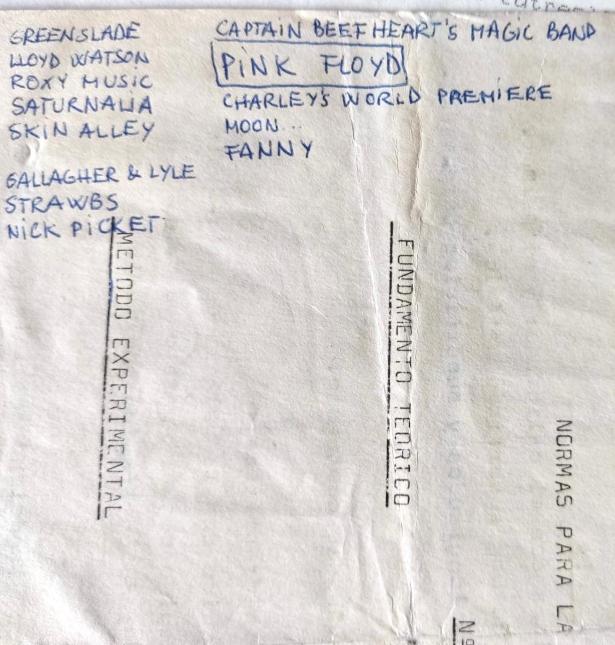 GREENSLADE
LLOYD WATSON
ROXY MUSIC
SATURNALIA
SKIN ALLEY
GALLAGHER & LYLE
STRAWBS
NICK PICKET
CAPTAIN BEEFHEART'S MAGIC BAND
PINK FLOYD
CHARLEY'S WORLD PREMIERE
MOON...
FANNY
METODO EXPERIMENTAL
FUNDAMENTO TEORICO
NORMAS PARA LA
Nº